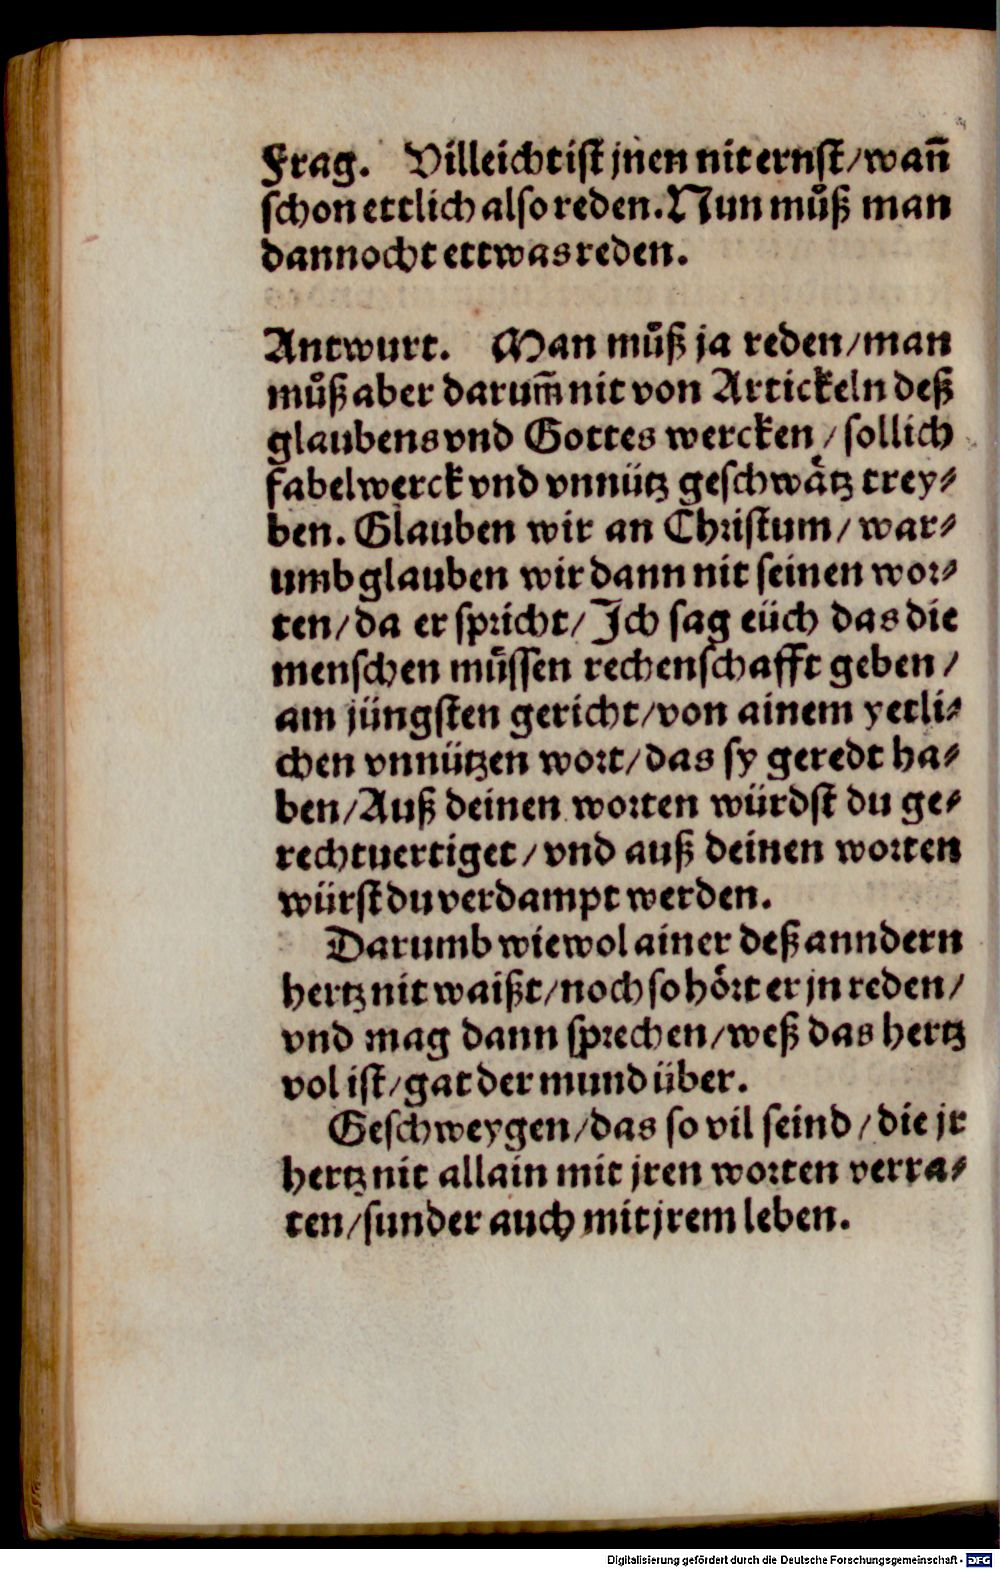 Frag. Villeicht ist jnen nit ernst/wañ
schon ettlich also reden. Nun můß man
dannocht ettwas reden.
Antwurt. Man můß ja reden/man
můß aber darum̃ nit von Artickeln deß
glaubens vnd Gottes wercken/sollich
fabelwerck vnd vnnütz geschwätz trey⸗
ben. Glauben wir an Christum/war⸗
umb glauben wir dann nit seinen wor⸗
ten/da er spricht/Ich sag eüch das die
menschen müssen rechenschafft geben/
am jüngsten gericht/von ainem yetli⸗
chen vnnützen wort/das sy geredt ha⸗
ben/Auß deinen worten würdst du ge⸗
rechtuertiget/vnd auß deinen worten
würst du verdampt werden.
Darumb wiewol ainer deß anndern
hertz nit waißt/noch so hört er jn reden/
vnd mag dann sprechen/weß das hertz
vol ist/gat der mund über.
Geschweygen/das so vil seind/die jr
hertz nit allain mit jren worten verra⸗
ten/sunder auch mit jrem leben.
Digitalisierung gefördert durch die Deutsche Forschungsgemeinschaft - DFG